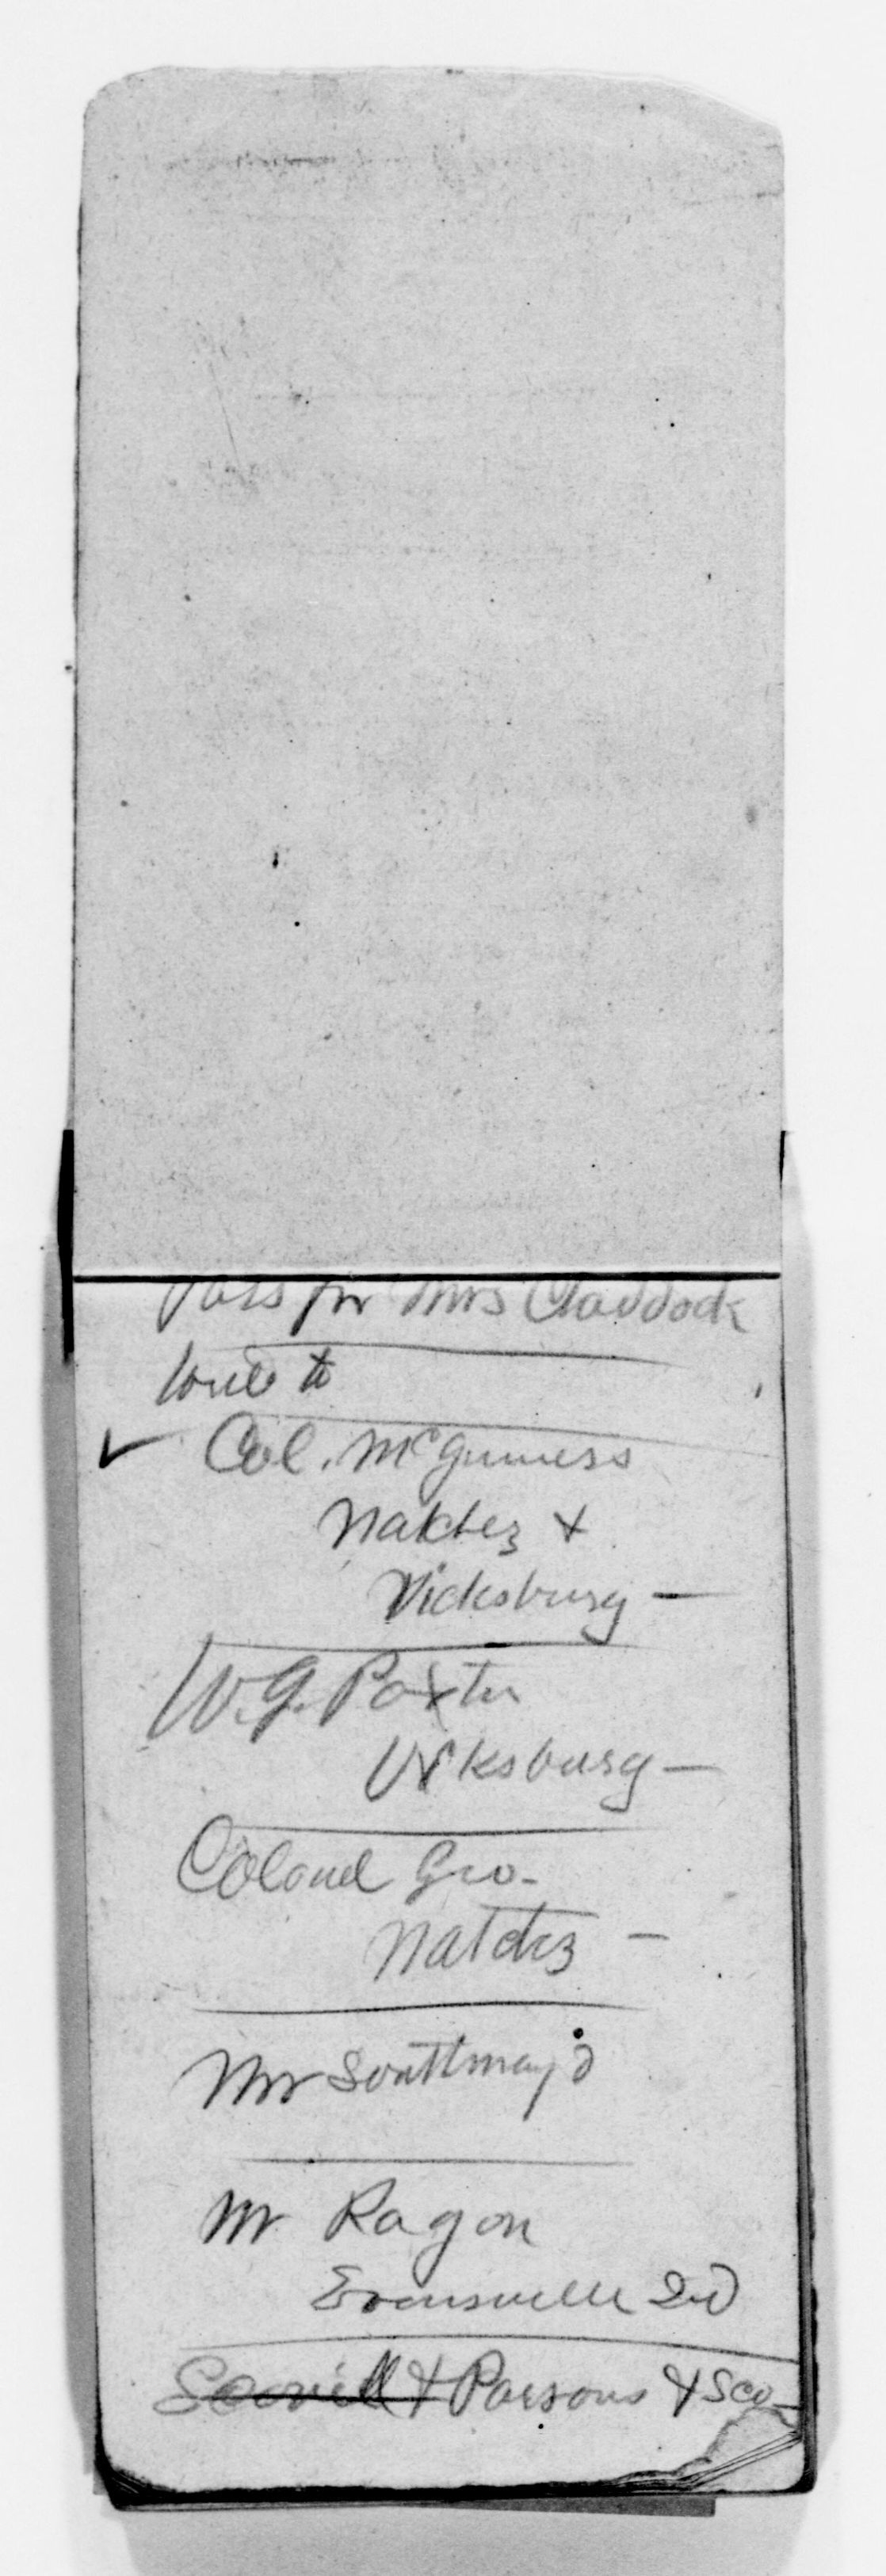 Pass for Mrs Craddock
Write to
✓ Col. McGinness
Natchez +
Vicksburg —
W.G. Paxton
Vicksburg —
Colonel Geo.
Natchez —
Mr Southmayd
Mr Ragon
Evansville Ind
Scovill & Parsons & Sco